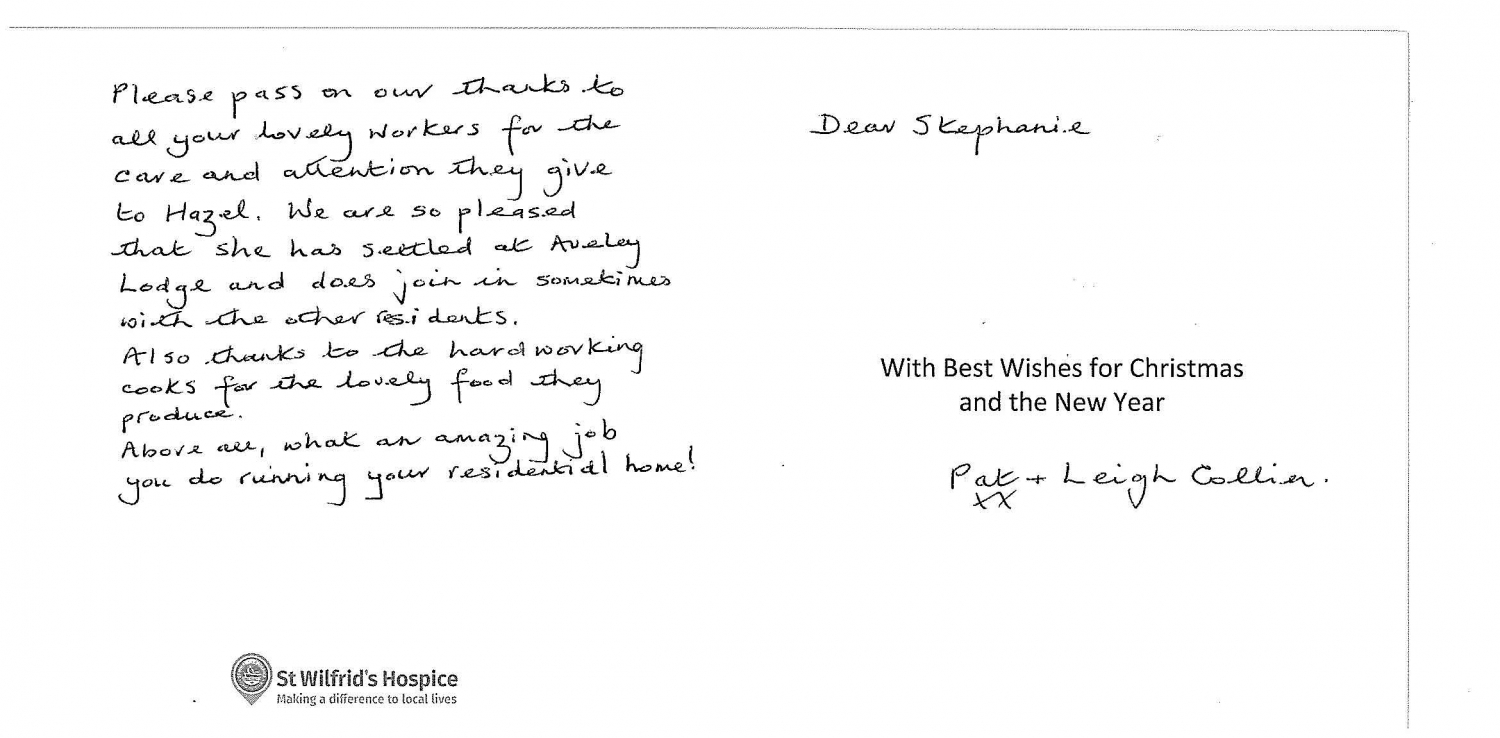 Please pass on our thanks to
all your lovely workers for the
care and attention they give
to Hazel. We are so pleased
that she has settled at Aveley
Lodge and does join in sometimes
with the other residents.
Also thanks to the hardworking
cooks for the lovely food they
produce.
Above all, what an amazing job
you do running your residential home!
St Wilfrid's Hospice
Making a difference to local lives
Dear Stephanie
With Best Wishes for Christmas
and the New Year
Pat + Leigh Collier.
xx